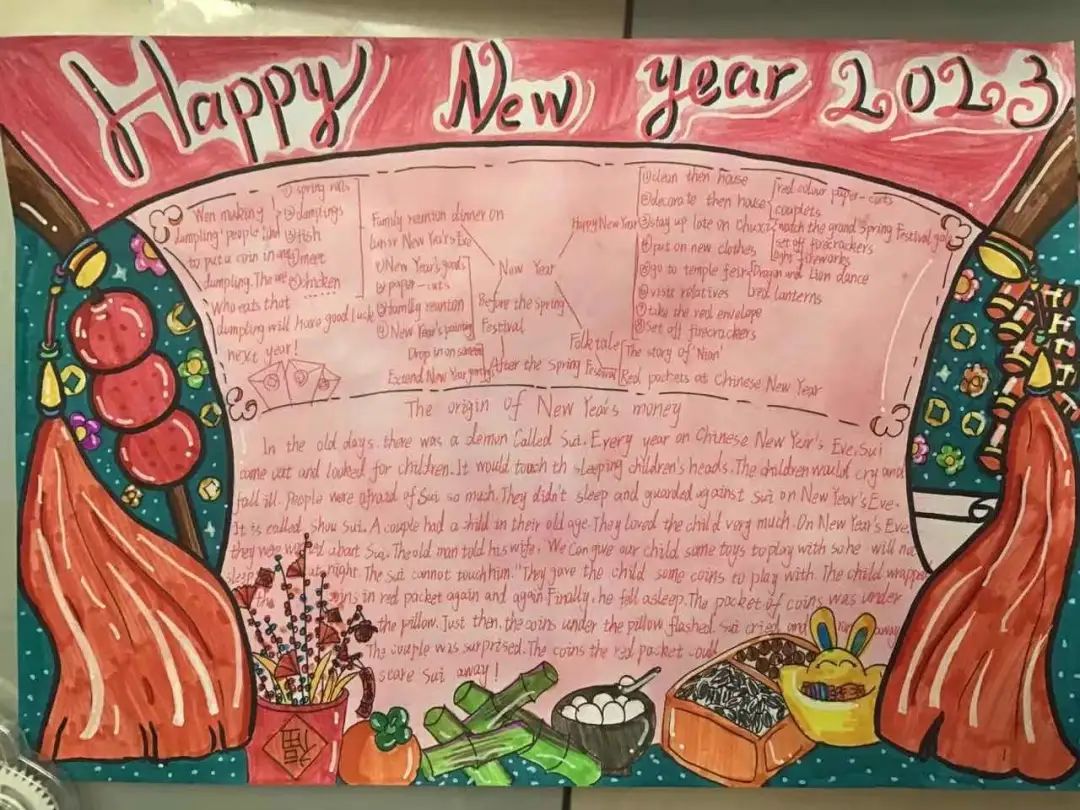 Happy New year 2023
Wen making
dumpling people
to put a coin in
dumpling. The
Who eats that
dumpling will have good luck
next year!
① spring rolls
② dumplings
③ fish
④ meet
⑤ chicken
......
Family reunion dinner on
lunar New Year's Eve
① New Year's goods
② paper-cuts
③ familly reunion
④ New Year's painting
New Year
Before the Spring
Festival
Drop in on
Extend New Year
After the Spring Festival
Happy New Year
① clean then house
② decorate then house
③ stay up late on Chuxi
④ put on new clothes
⑤ go to temple feir
⑥ vists relatives
⑦ take the red envelope
⑧ set off firecrackers
red colour paper-cuts
couplets
watch the grand Spring Festival gala
set off firecrackers
light fireworks
Dragon and Lion dance
red lanterns
Folktale
The story of "Nian"
Red packets at Chinese New Year
The origin of New Year's money
In the old days, there was a demon Called Sui. Every year on Chinese New Year's Eve, Sui
came out and looked for children. It would touch th sleeping children's heads. The children would cry and
fall ill. People were afraid of Sui so much. They didn't sleep and guarded against Sui on New Year's Eve.
It is called shou Sui. A couple had a child in their old age. They loved the child very much. On New Year's Eve,
they were about Sui. The old man told his wife, "We Can give our child some toys to play with so he will not
sleep at night. The Sui cannot touch him." They gave the child some coins to play with. The child wrapped
the coins in red packet again and again. Finally, he fell asleep. The packet of coins was under
the pillow. Just then, the coins under the pillow flashed. Sui cried and away
The couple was surprised. The coins the red packet could
scare Sui away!
福